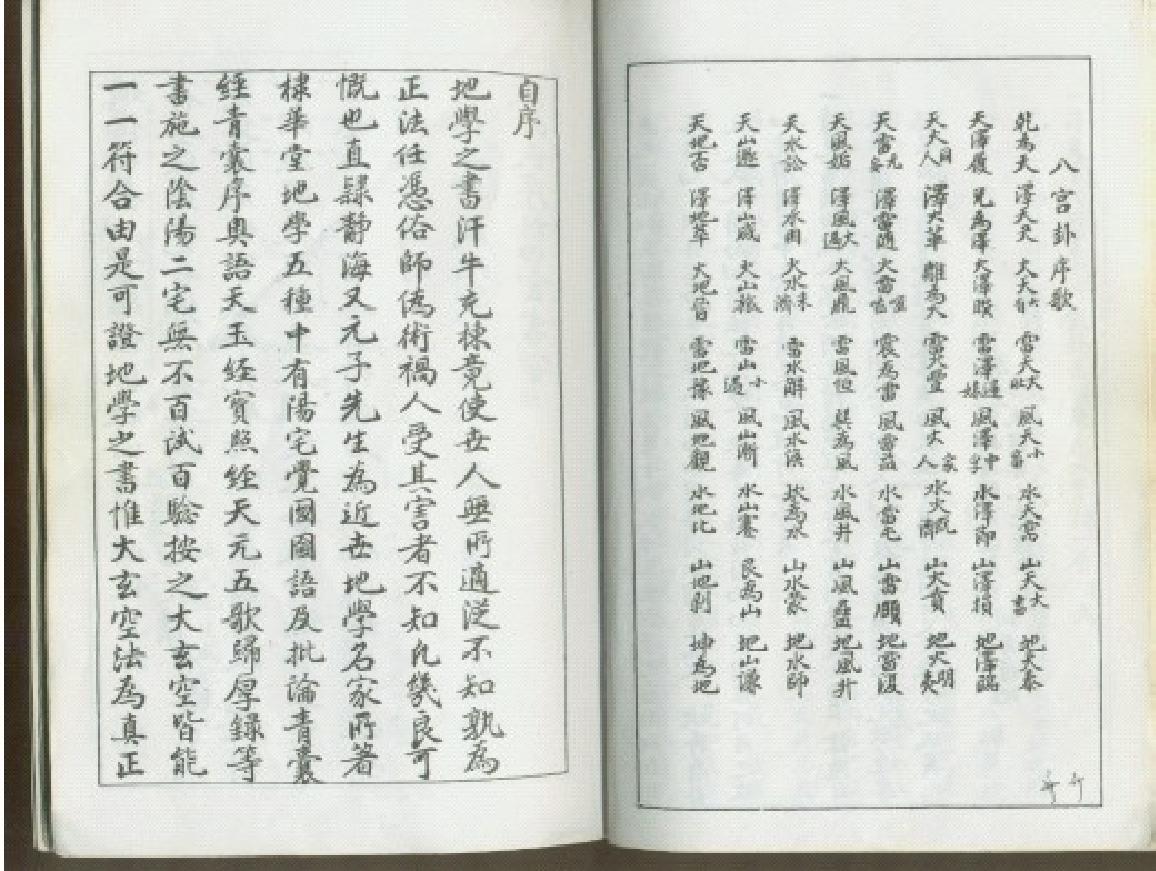 八宮卦序歌
乾為天 澤天夬 火天大有 雷天大壯 風天小畜 水天需 山天大畜 地天泰
天澤履 兌為澤 火澤睽 雷澤歸妹 風澤中孚 水澤節 山澤損 地澤臨
天火同人 澤火革 離為火 雷火豐 風火家人 水火既濟 山火賁 地火明夷
天雷无妄 澤雷隨 火雷噬嗑 震為雷 風雷益 水雷屯 山雷頤 地雷復
天風姤 澤風大過 火風鼎 雷風恒 巽為風 水風井 山風蠱 地風升
天水訟 澤水困 火水未濟 雷水解 風水渙 坎為水 山水蒙 地水師
天山遯 澤山咸 火山旅 雷山小過 風山漸 水山蹇 艮為山 地山謙
天地否 澤地萃 火地晉 雷地豫 風地觀 水地比 山地剝 坤為地
自序
地學之書汗牛充棟竟使世人無所適從不知孰為
正法任憑俗師偽術禍人受其害者不知凡幾良可
慨也直隸靜海又元子先生為近世地學名家所著
棣華堂地學五種中有陽宅覺國圖語及批論青囊
經青囊序奧語天玉經寶照經天元五歌歸厚錄等
書施之陰陽二宅無不百試百驗按之大玄空皆能
一一符合由是可證地學之書惟大玄空法為真正